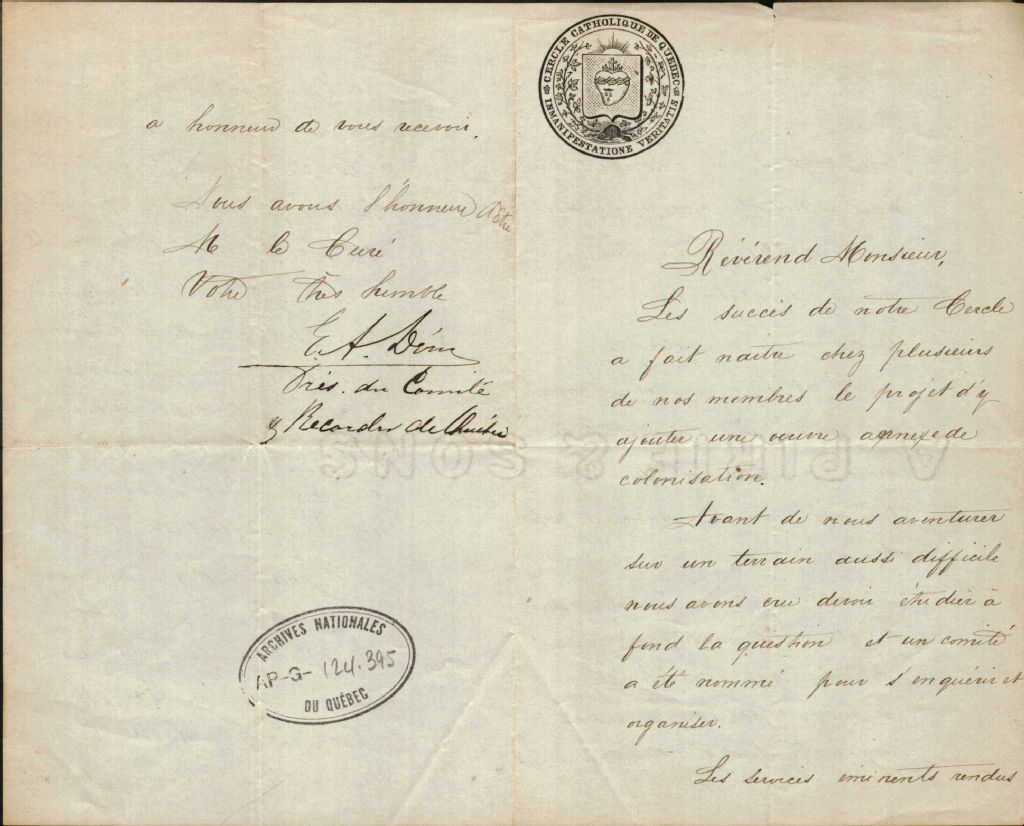 CERCLE CATHOLIQUE DE QUEBEC
IN MANIFESTATIONE VERITATIS
Révérend Monsieur,
Les succès de notre Cercle
a fait naitre chez plusieurs
de nos membres le projet d'y
ajouter une oeuvre annexe de
colonisation.
Avant de nous aventurer
sur un terrain aussi difficile
nous avons cru devoir étudier à
fond la question et un comité
a été nommé pour s'enquérir et
organiser.
Les services eminents rendus
a honneur de vous recevoir.
Nous avons l'honneur d'être
M le Curé
Votre très humble
E. A. Déry
Prés. du Comité
Recorder de Québec
A. PIRIE & SONS
ARCHIVES NATIONALES
AP-G-124.395
DU QUÉBEC